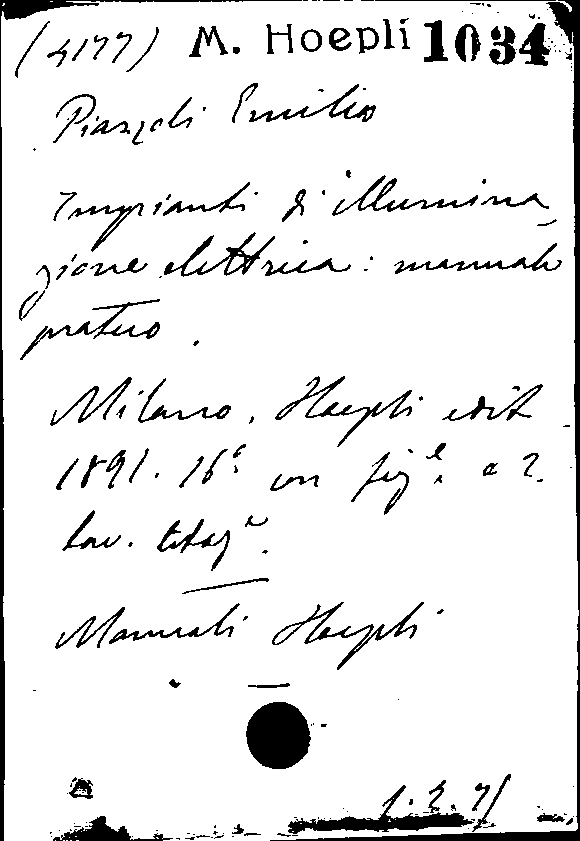 (4177) M. Hoepli 1034
Piazzoli Emilio
Impianti di illumina
zione elettrica: manuale
pratico.
Milano, Hoepli edit
1891. 16° con fig.e e 2.
tav. litogr.
Manuali Hoepli
1.2.71